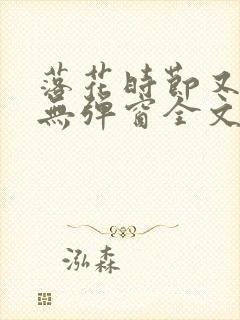 落花時節又
無彈窗全文
泓森